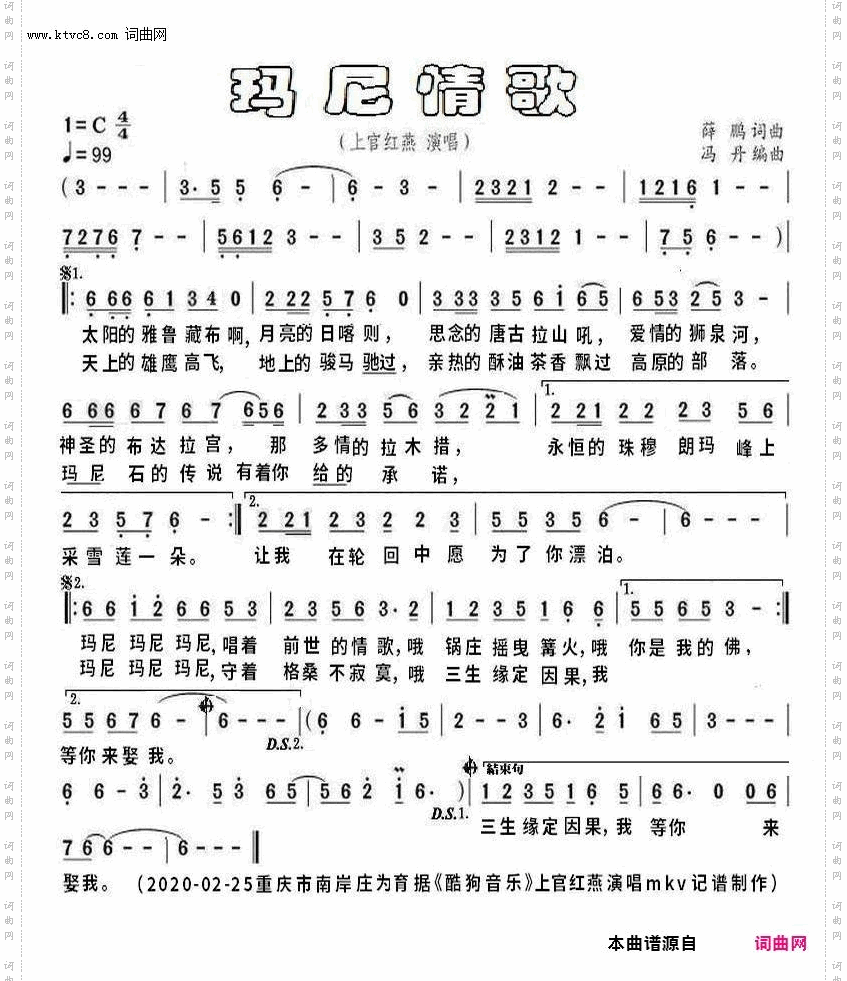 www.ktvc8.com 词曲网
玛尼情歌
1=C 4/4
♩=99
(上官红燕 演唱)
薛 鹏 词曲
冯 丹 编曲
(3 - - - | 3· 5 5 6 - | 6 - 3 - | 2321 2 - - | 1216 1 - - |
7276 7 - - | 5612 3 - - | 35 2 - - | 2312 1 - - | 7 5 6 - - )|
𝄋1.
‖: 6 66 61 34 0 | 2 22 57 6 0 | 3 33 35 61 65 | 6 53 25 3 - |
太阳的 雅鲁 藏布啊, 月亮的 日喀 则, 思念的 唐古 拉山 吼, 爱情的 狮泉 河,
天上的 雄鹰 高飞, 地上的 骏马 驰过, 亲热的 酥油 茶香 飘过 高原的 部 落。
1.
6 66 67 67 656 | 2 33 56 32 21 | 2 21 22 23 56 |
神圣的 布达 拉宫, 那 多情的 拉木 措, 永恒的 珠穆 朗玛 峰上
玛尼 石的 传说 有着你 给的 承 诺,
2.
23 57 6 - :‖ 2 21 23 22 3 | 55 35 6 - | 6 - - - |
采雪 莲一 朵。 让我 在轮 回中 愿 为了 你漂 泊。
𝄋2.
1.
‖: 66 12 66 53 | 23 56 3· 2 | 12 35 16 6 | 55 65 3 - :‖
玛尼 玛尼 玛尼, 唱着 前世 的情 歌, 哦 锅庄 摇曳 篝火, 哦 你是 我的 佛,
玛尼 玛尼 玛尼, 守着 格桑 不寂 寞, 哦 三生 缘定 因果, 我
2.
55 67 6 - | 6 - - - | (6 6 - 15 | 2 - - 3 | 6· 21 65 | 3 - - - |
D.S.2.
等你 来娶 我。
结束句
6 6 - 3 | 2· 53 65 | 562 16· ) | 12 35 16 5 | 66· 0 06 |
D.S.1.
三生 缘定 因果, 我 等你 来
76 6 - - | 6 - - - ‖
娶我。 (2020-02-25重庆市南岸庄为育据《酷狗音乐》上官红燕演唱mkv记谱制作)
本曲谱源自 词曲网